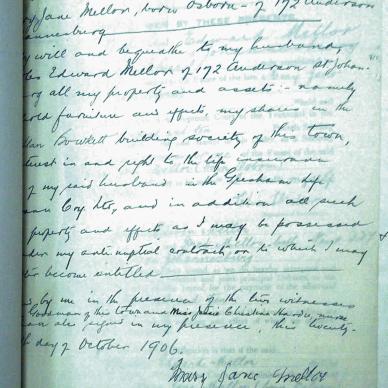 Jane Mellor, born Osborn - of 172 Anderson
will and bequeathe to my husband,
Edward Mellor of 172 Anderson St Johan-
all my property and assets :- namely
furniture and effects, my shares in the
Bowkett building society of this town,
in and right to the life insurance
of my said husband in the Gresham Life
Coy Ltd, and in addition all such
property and effects as I may be possessed
my anti nuptial contract or to which I may
become entitled
by me in the presence of the two witnesses
Goodman of this town and Miss Christina Hardie, nurse
signed in my presence, this twenty-
day of October 1906.
Mary Jane Mellor